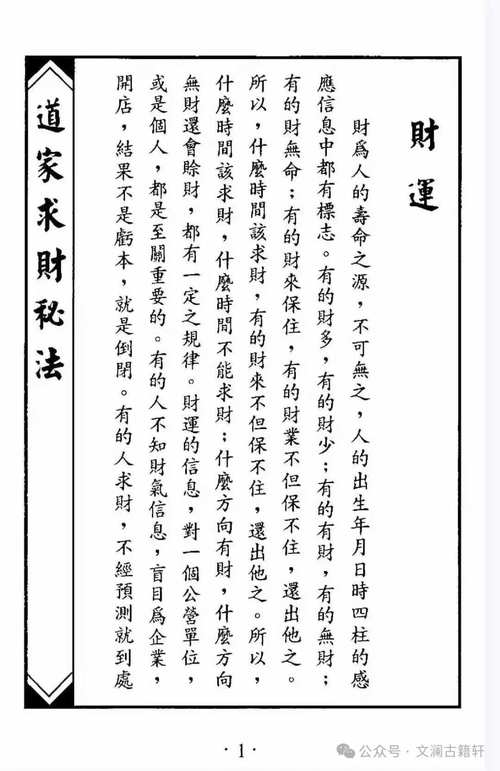 財運
財爲人的壽命之源，不可無之，人的出生年月日時四柱的感
應信息中都有標志。有的財多，有的財少；有的有財，有的無財；
有的財無命；有的財來保住，有的財業不但保不住，還出他之。
所以，什麼時間該求財，有的財來不但保不住，還出他之。所以，
什麼時間該求財，什麼時間不能求財；什麼方向有財，什麼方向
無財還會賒財，都有一定之規律。財運的信息，對一個公營單位，
或是個人，都是至關重要的。有的人不知財氣信息，盲目爲企業，
開店，結果不是虧本，就是倒閉。有的人求財，不經預測就到處
道家求財秘法
·1·
公众号·文澜古籍轩